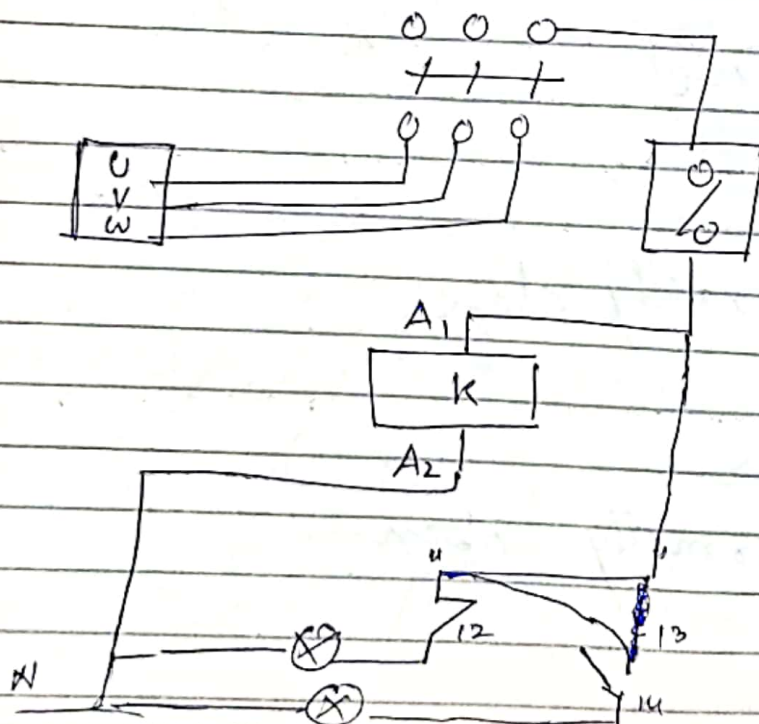 U
V
W
A1
K
A2
11
12
13
14
N